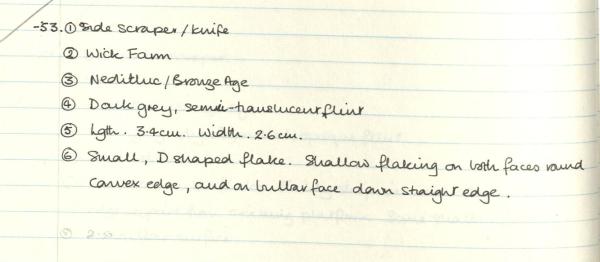 -53. ① Side Scraper/knife
② Wick Farm
③ Neolithic/Bronze Age
④ Dark grey, semi-translucent flint
⑤ lgth. 3.4cm. width. 2.6cm.
⑥ Small, D shaped flake. Shallow flaking on both faces round
convex edge, and on bulbar face down straight edge.